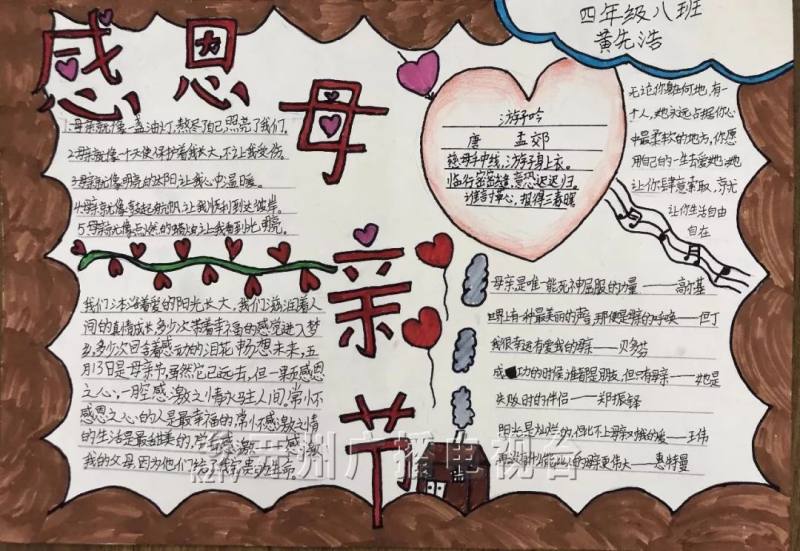 四年级八班
黄先浩
感恩
母亲节
1.母亲就像一盏油灯,熬尽了自己,照亮了我们。
2.母亲就像一个天使保护着我长大,不让我受伤。
3.母亲就像明亮的太阳让我心中温暖。
4.母亲就像鼓起的帆让我顺利到达彼岸。
5.母亲就像点燃的蜡烛让我看到光亮。
游子吟
唐 孟郊
慈母手中线,游子身上衣。
临行密密缝,意恐迟迟归。
谁言寸草心,报得三春晖
无论你身在何地,有一
个人,她永远占据你心
中最柔软的地方,你愿
用自己的一生去爱她,她
让你肆意索取,享尤
让你生活自由
自在
我们沐浴着爱的阳光长大,我们滋润着人
间的真情成长,多少次带着幸福的感觉进入梦
乡,多少次回含着感动的泪花畅想未来,五
月13日是母亲节,虽然它已远去,但一束
感恩
之心,一腔感激之情永驻人间,常怀
感恩之心的人是最幸福的,常怀感激之情
的生活是最甜美的,学会感激
感激
我的父母,因为他们给了我宝贵的生命。
母亲是唯一能死神屈服的力量——高尔基
世界上有一种最美丽的声音,那便是母亲的呼唤——但丁
我很幸运有爱我的母亲——贝多芬
成功的时候,谁都是朋友,但只有母亲——她是
失败时的伴侣——郑振铎
阳光是灿烂的,但比不上母亲对我的爱——王伟
的母亲更伟大——惠特曼
开州广播电视台